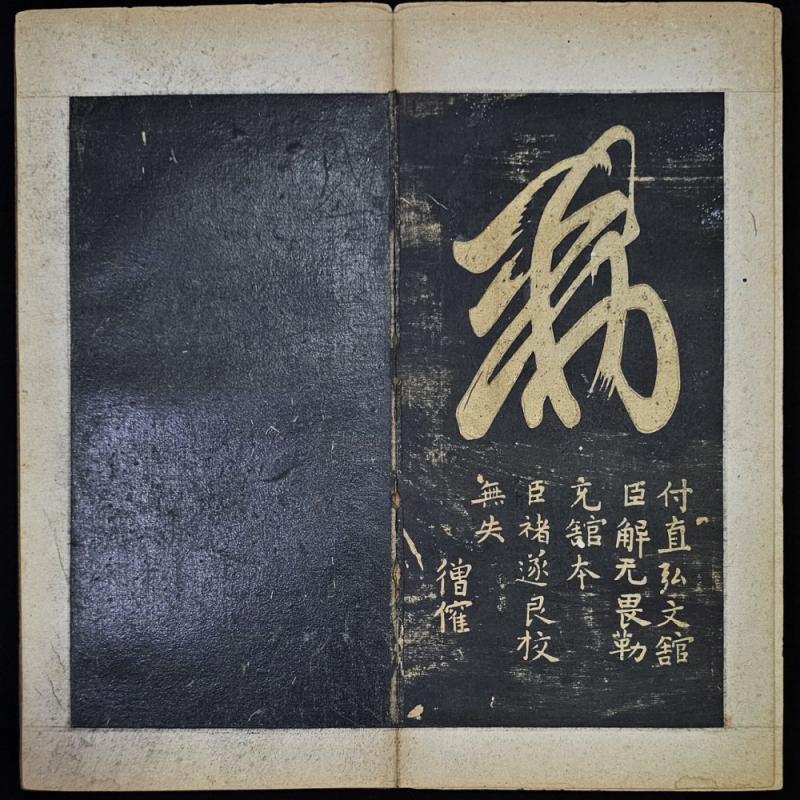 敕
付直弘文舘
臣解无畏勒
充舘本
臣褚遂良校
無失
僧權